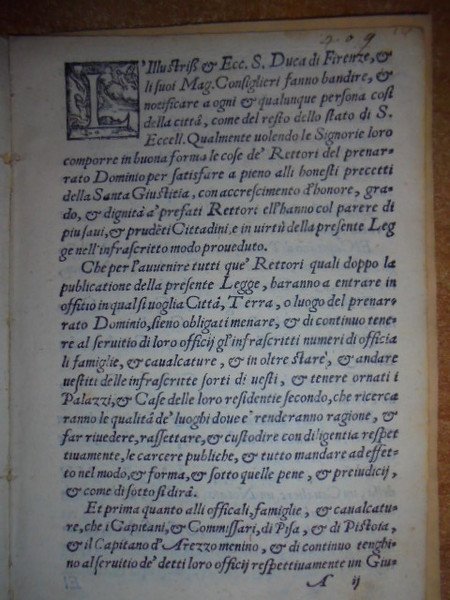 209
L'Illustriss & Ecc. S. Duca di Firenze, &
li suoi Mag. Consiglieri fanno bandire, &
notificare a ogni & qualunque persona cosi
della città, come del resto dello stato di S.
Eccell. Qualmente uolendo le Signorie loro
comporre in buona forma le cose de' Rettori del prenar-
rato Dominio per satisfare a pieno alli honesti precetti
della Santa Giustitia, con accrescimento d'honore, gra-
do, & dignità a' prefati Rettori ell'hanno col parere di
piu saui, & prudēti Cittadini, e in uirtù della presente Leg
ge nell'infrascritto modo proueduto.
Che per l'auuenire tutti que' Rettori quali doppo la
publicatione della presente Legge, haranno a entrare in
officio in qual si uoglia Città, Terra, o luogo del prenar-
rato Dominio, sieno obligati menare, & di continuo tene-
re al seruitio di loro officij gl'infrascritti numeri di officia
li famiglie, & caualcature, & in oltre stare, & andare
uestiti delle infrascritte sorti di uesti, & tenere ornati i
Palazzi, & Case delle loro residentie secondo, che ricerca
ranno le qualità de' luoghi doue e' renderanno ragione, &
far riuedere, rassettare, & custodire con diligentia respet
tiuamente, le carcere publiche, & tutto mandare ad effet-
to nel modo, & forma, & sotto quelle pene, & preiudicij,
& come di sotto si dirà.
Et prima quanto alli officali, famiglie, & caualca-
ture, che i Capitani, & Commissari, di Pisa, & di Pistoia,
& il Capitano d'Arezzo menino, & di continuo tenghi-
no al seruitio de' detti loro officij respettiuamente un Giu-
A ij